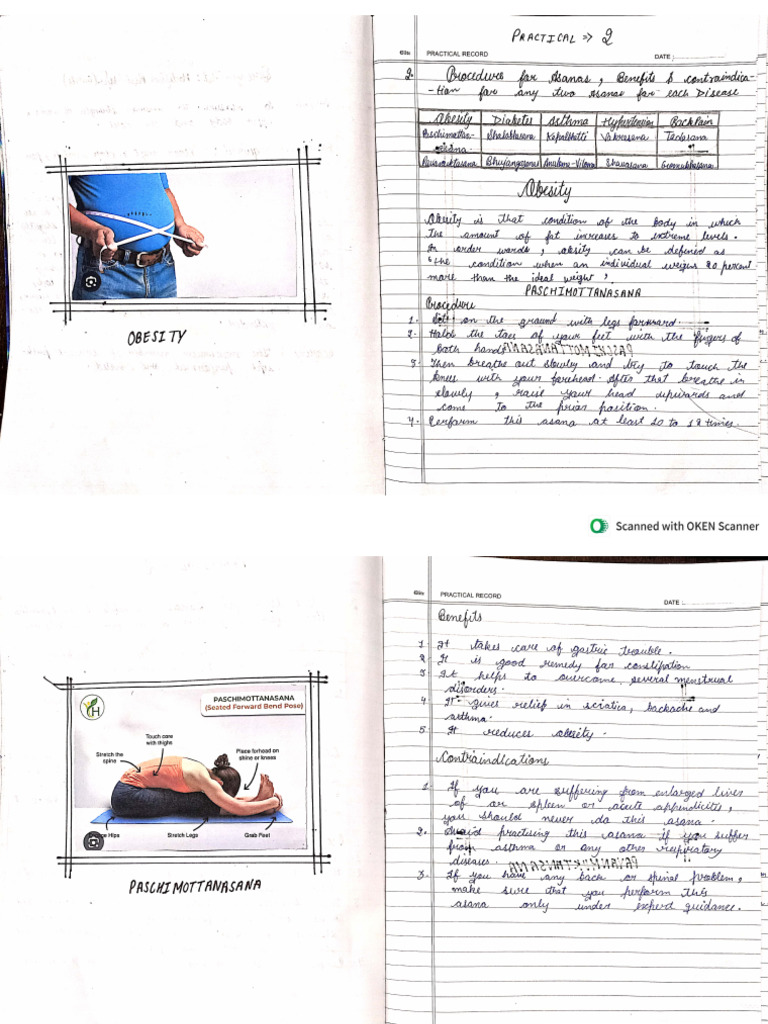 PRACTICAL ⇒ 2
PRACTICAL RECORD
DATE :
2. Procedures for Asanas, Benefits & contraindica-
-tion for any two Asanas for each Disease
Obesity Diabetes Asthma Hypertension Back Pain
Pschimottan- Shalabhasana Kapalbhatti Vakrasana Tadasana
asana
Pavanmuktasana Bhujangasana Anulom-Viloma Shavasana
Obesity
Obesity is that condition of the body in which
the amount of fat increases to extreme levels.
In order words, obesity can be defined as
"the condition when an individual weighs 20 percent
more than the ideal weight"
PASCHIMOTTANASANA
Procedure
1. on the ground with legs forward.
2. Hold the toes of your feet with the fingers of
both hands
3. Then breathe out slowly and try to touch the
knees with your forehead. After that breathe in
slowly, raise your head upwards and
come to the prior position.
4. Perform this asana at least 10 to 12 times.
OBESITY
Scanned with OKEN Scanner
PRACTICAL RECORD
DATE :
Benefits
1. It takes care of gastric trouble.
2. It is good remedy for constipation
3. It helps to overcome several menstrual
disorders.
4. It gives relief in sciatica, backache and
asthma.
5. It reduces obesity.
Contraindications
1. If you are suffering from enlarged liver
of or spleen or acute appendicitis,
you should never do this asana.
2. Avoid practising this asana if you suffer
from asthma or any other respiratory
diseases.
3. If you have any back or spinal problem,
make sure that you perform this
asana only under experd guidance.
PASCHIMOTTANASANA
(Seated Forward Bend Pose)
Touch core
with thighs
Stretch the
spine
Place forhead on
shins or knees
Hips
Stretch Legs
Grab Feet
PASCHIMOTTANASANA